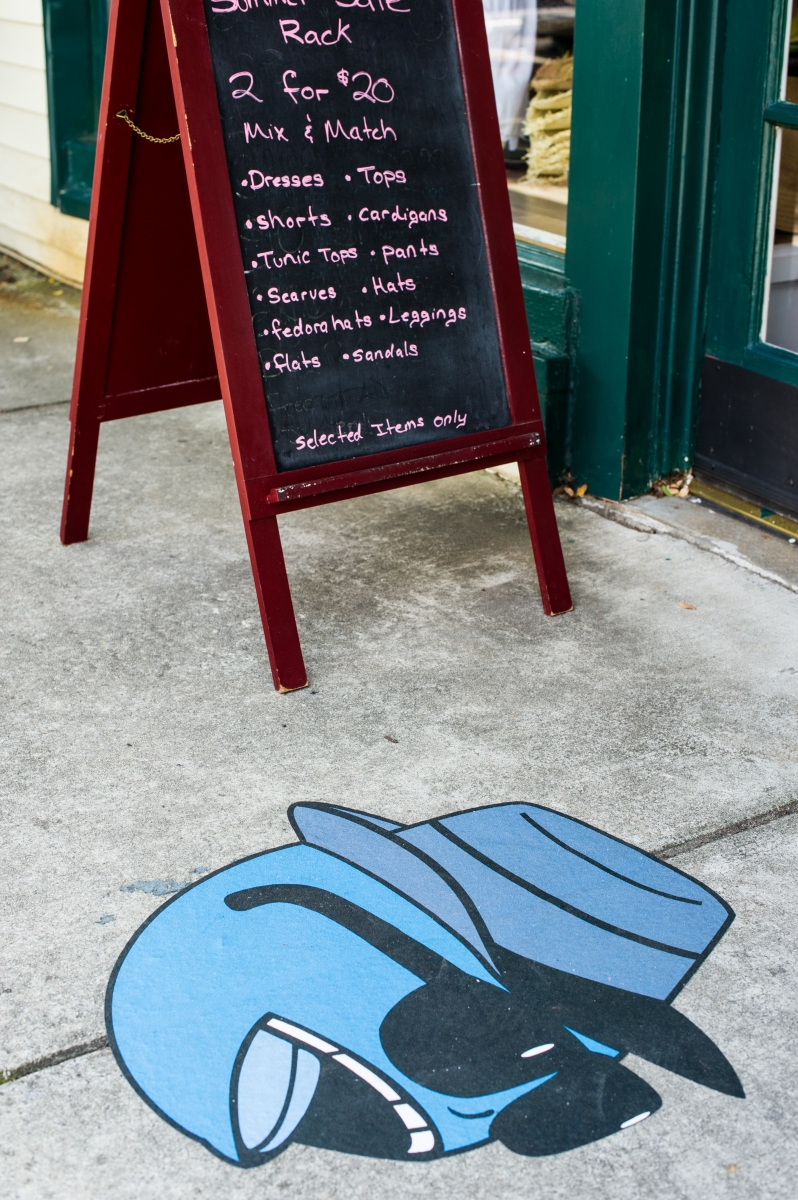 Summer Sale
Rack
2 for $20
Mix & Match
•Dresses •Tops
•shorts •cardigans
•Tunic Tops •pants
•Scarves •Hats
•fedora hats •Leggings
•flats •sandals
selected Items only